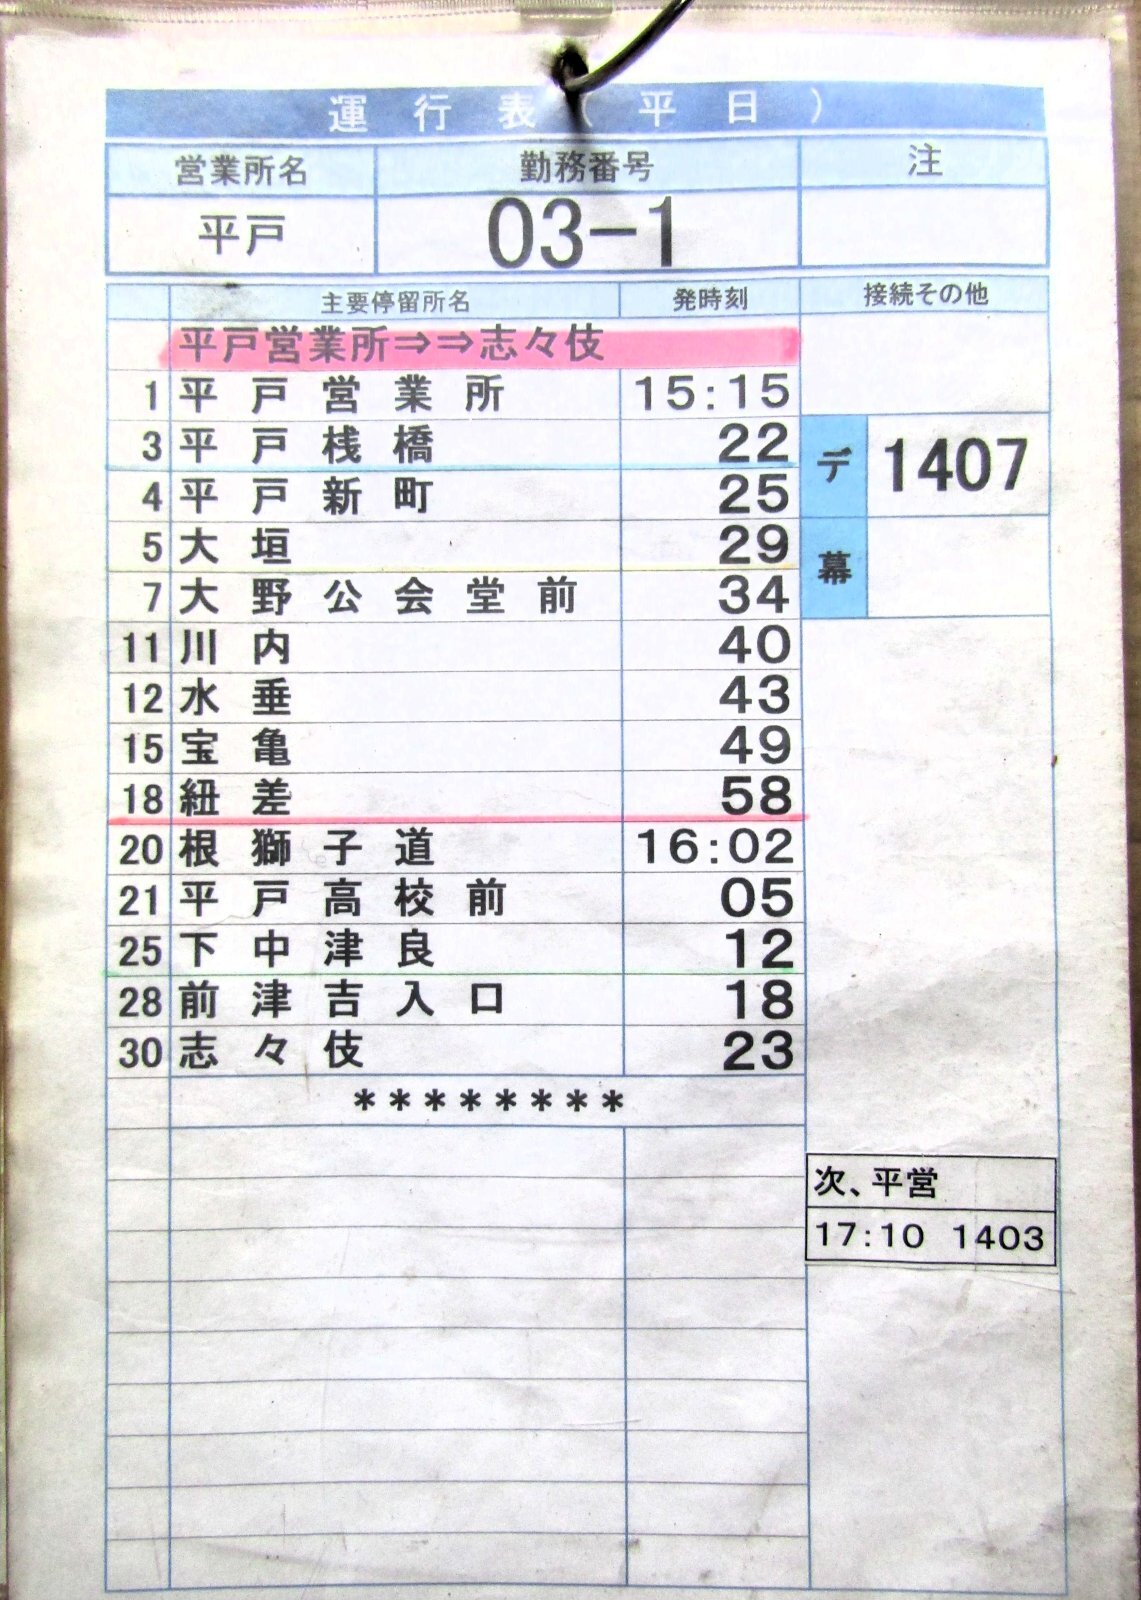 運行表(平日)
営業所名 勤務番号 注
平戸 03-1
主要停留所名 発時刻 接続その他
平戸営業所⇒⇒志々伎
1 平戸営業所 15:15
3 平戸桟橋 22
デ 1407
4 平戸新町 25
5 大垣 29
幕
7 大野公会堂前 34
11 川内 40
12 水垂 43
15 宝亀 49
18 紐差 58
20 根獅子道 16:02
21 平戸高校前 05
25 下中津良 12
28 前津吉入口 18
30 志々伎 23
********
次、平営
17:10 1403